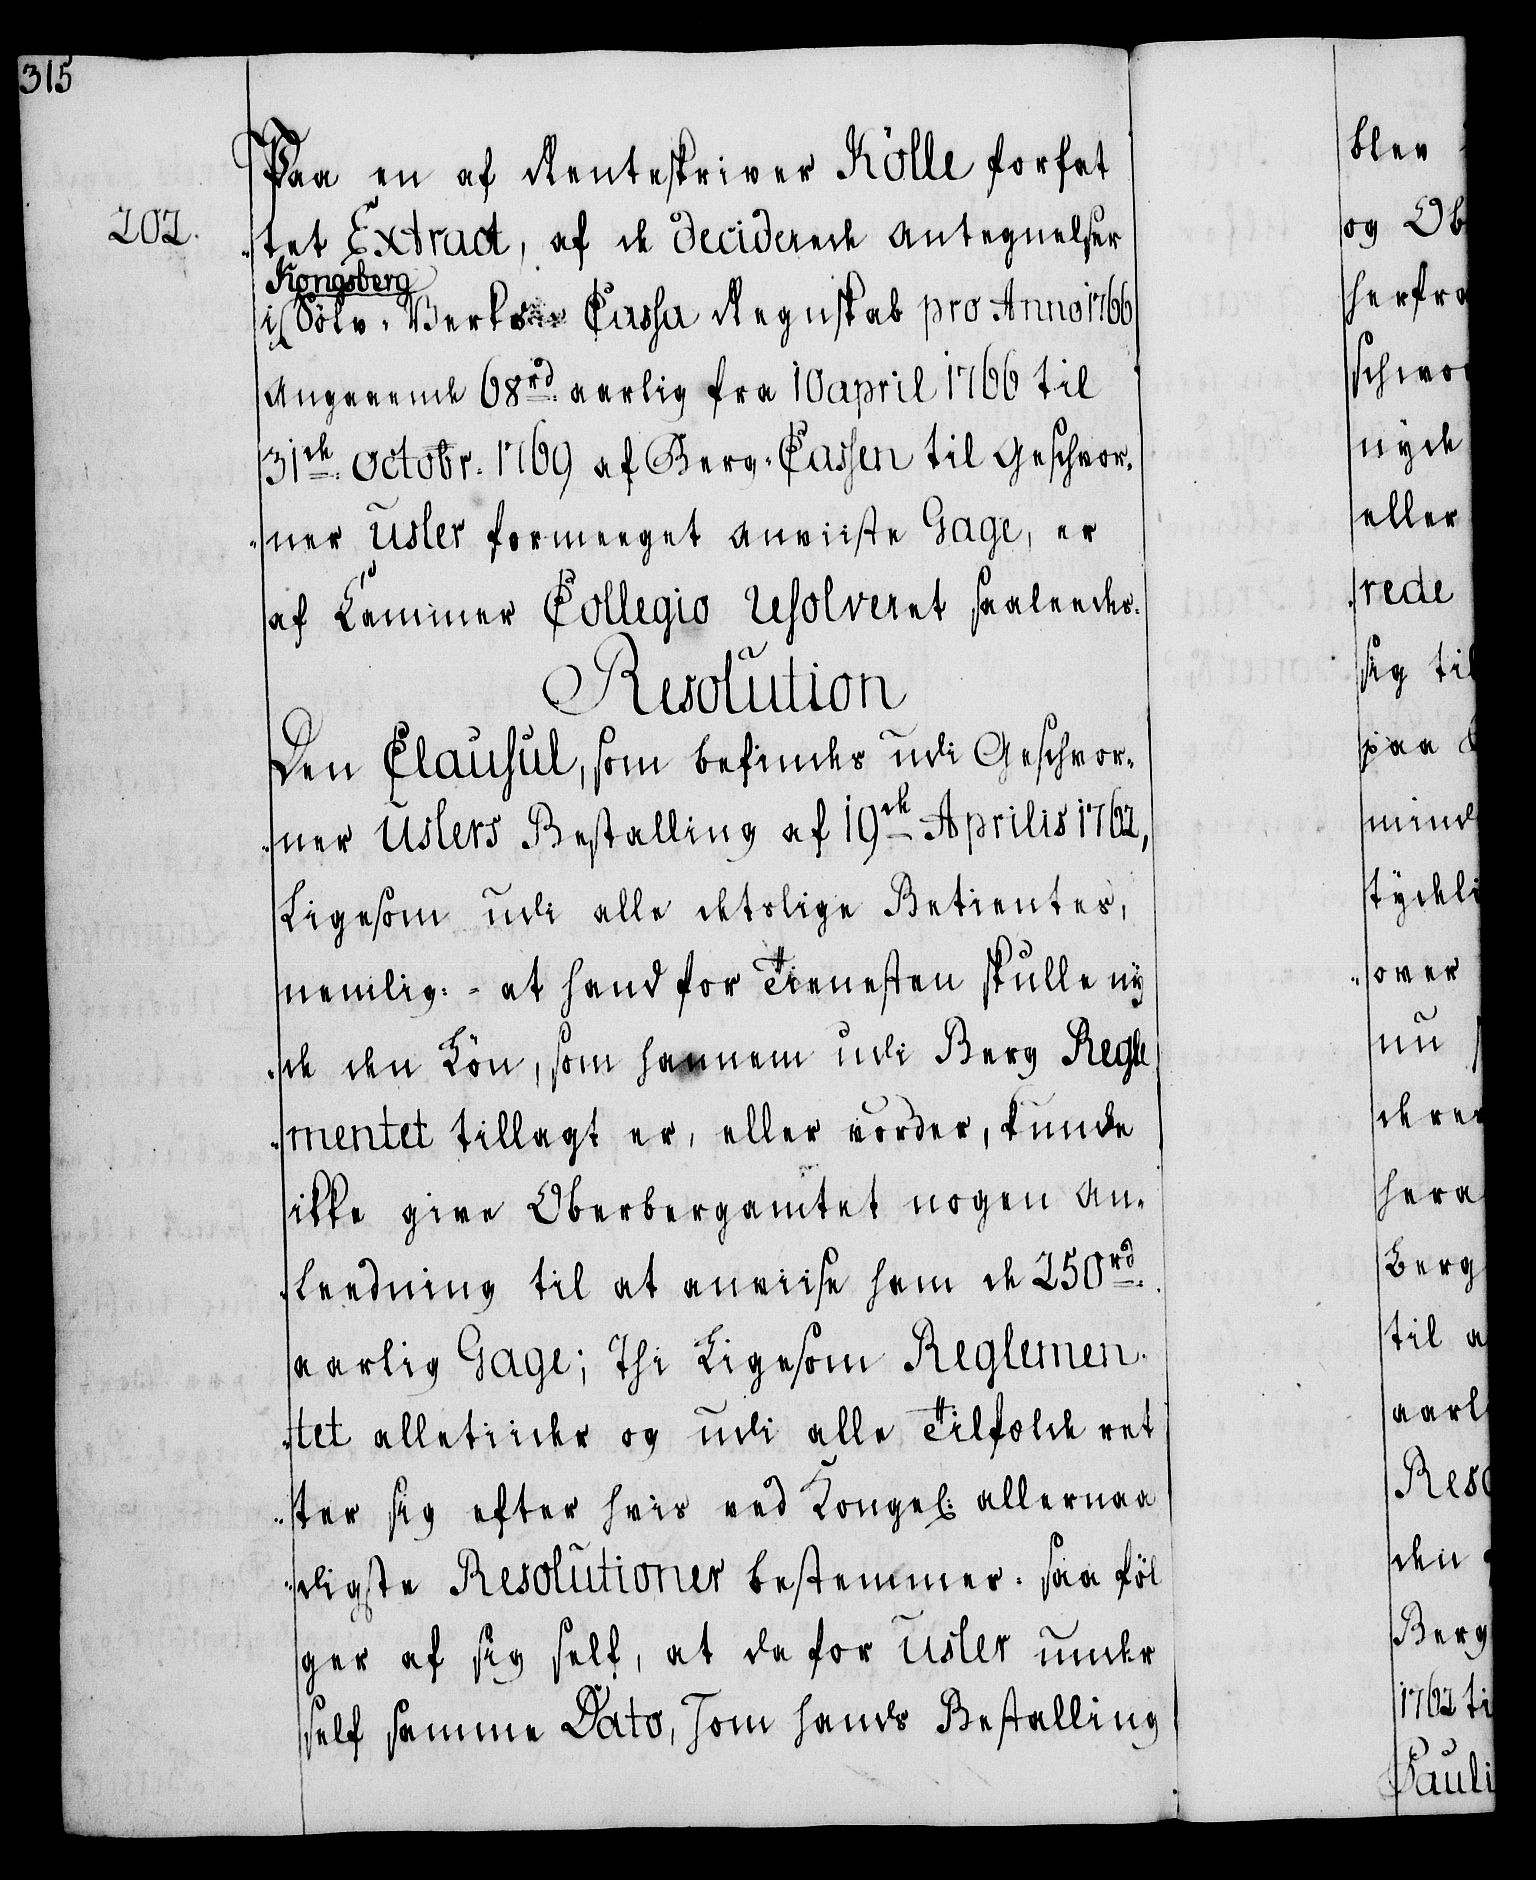 315
202.
Paa en af Renteskriver Kölle forfat
tet Extract, af de deciderede Antegnelser
Kongsberg
i Sölv-Verks Cassa Regnskab pro Anno 1766
Angaaende 68rd aarlig fra 10 april 1766 til
31de Octobr. 1769 af Berg-Cassen til Geschvor-
ner Usler formeeget anviiste Gage, er
af Cammer Collegio resolveret saaleedes.
Resolution
Den Clausul, som befindes udi Geschvor-
ner Uslers Bestalling af 19de Aprilis 1762,
Ligesom udi alle detslige Betientes,
nemlig: - at hand for Tienesten skulle ny
de den Lön, som hannem udi Berg Regle
mentet tillagt er, eller vorder, kunde
ikke give Oberbergamtet nogen An-
leedning til at anviise ham de 250rd.
aarlig Gage; Thi Ligesom Reglemen
tet alletiider og udi alle Tilfælde ret
ter sig efter hvis ved Kongel: allernaa
digste Resolutioner bestemmes. saa föl
ger af sig self, at da for Usler under
self samme Dato, som hands Bestalling
blev
og Ob
herfra
schwo
nyde
eller
rede
sig til
paa
mind
tydeli
over
nu
deres
hera
Berg
til a
aarl
Reso
den
Berg
1762 ti
Pauli